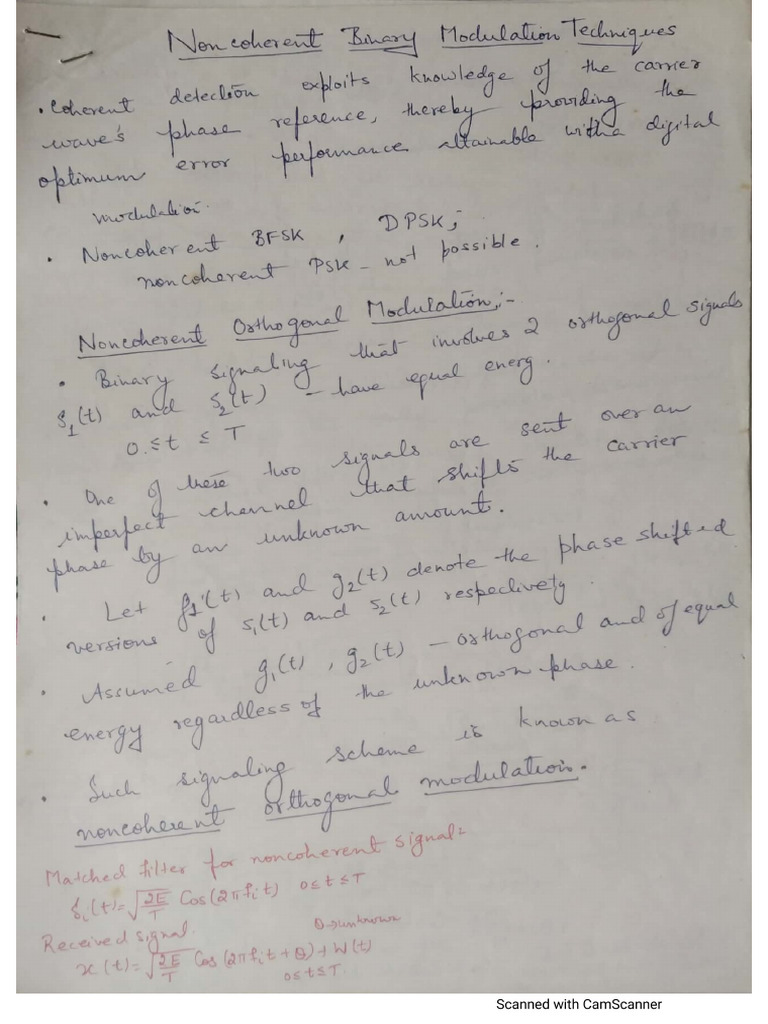 Noncoherent Binary Modulation Techniques
• Coherent detection exploits knowledge of the carrier
wave's phase reference, thereby providing the
optimum error performance attainable with a digital
modulation.
• Noncoherent BFSK, DPSK,
noncoherent PSK - not possible.
Noncoherent Orthogonal Modulation:-
• Binary signaling that involves 2 orthogonal signals
s₁(t) and s₂(t) - have equal energ.
0 ≤ t ≤ T
• One of these two signals are sent over an
imperfect channel that shifts the carrier
phase by an unknown amount.
• Let g₁(t) and g₂(t) denote the phase shifted
versions of s₁(t) and s₂(t) respectively.
• Assumed g₁(t), g₂(t) - orthogonal and of equal
energy regardless of the unknown phase.
• Such signaling scheme is known as
noncoherent orthogonal modulation.
Matched filter for noncoherent signal:
sᵢ(t) = √(2E/T) Cos(2πfᵢt) 0≤t≤T
Received signal. θ→unknown
x(t) = √(2E/T) Cos(2πfᵢt + θ) + W(t)
0≤t≤T.
Scanned with CamScanner